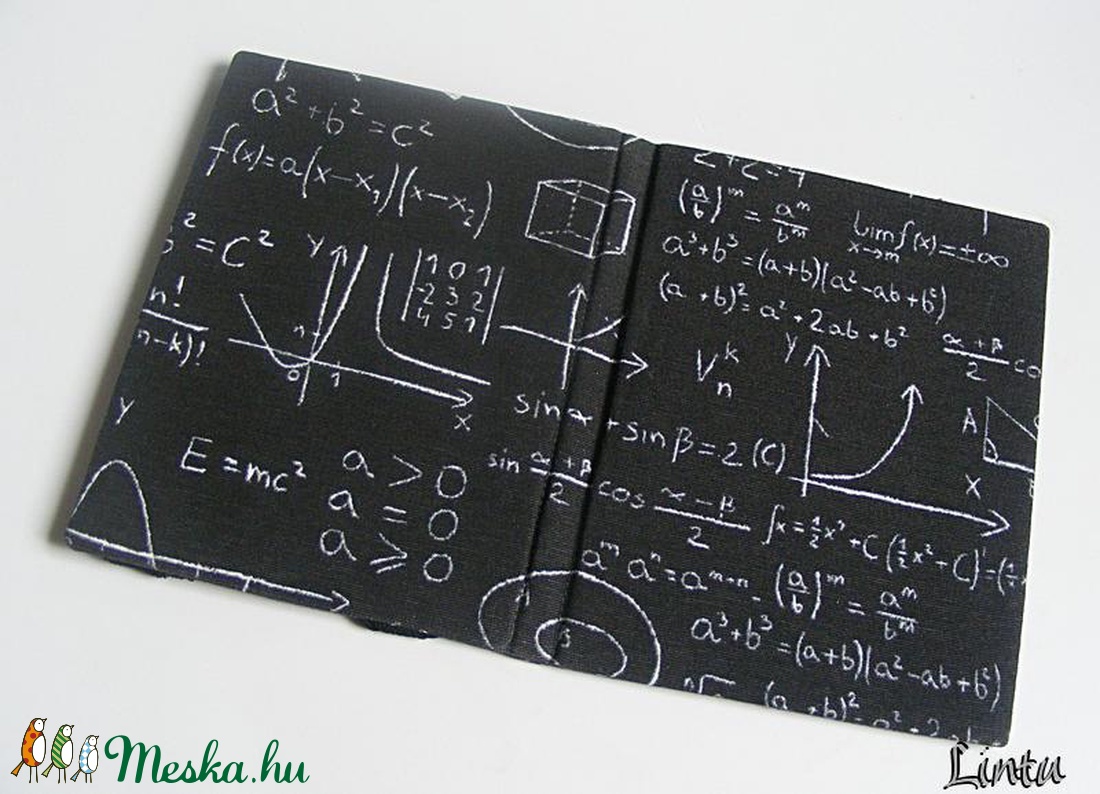 a² + b² = c²
f(x) = a(x - x₁)(x - x₂)
² = c²
n!
n-k)!
Y
n
0 1
X
|1 0 1|
|-2 3 2|
|4 5 1|
Y
E = mc²
a > 0
a = 0
a ⩾ 0
(a/b)^m = a^m/b^m
lim f(x) = ±∞
x→m
a³ + b³ = (a + b)(a² - ab + b²)
(a + b)² = a² + 2ab + b²
V_n^k
Y
α + β
2
co
A
X
sin α + sin β = 2 (C)
sin (α + β)/2 cos (α - β)/2
∫x = ½x² + C (½x² + C)' = (½
a^m a^n = a^(m+n)
(a/b)^m = a^m/b^m
a³ + b³ = (a + b)(a² - ab + b²)
(a + b)²
Meska.hu
Lintu